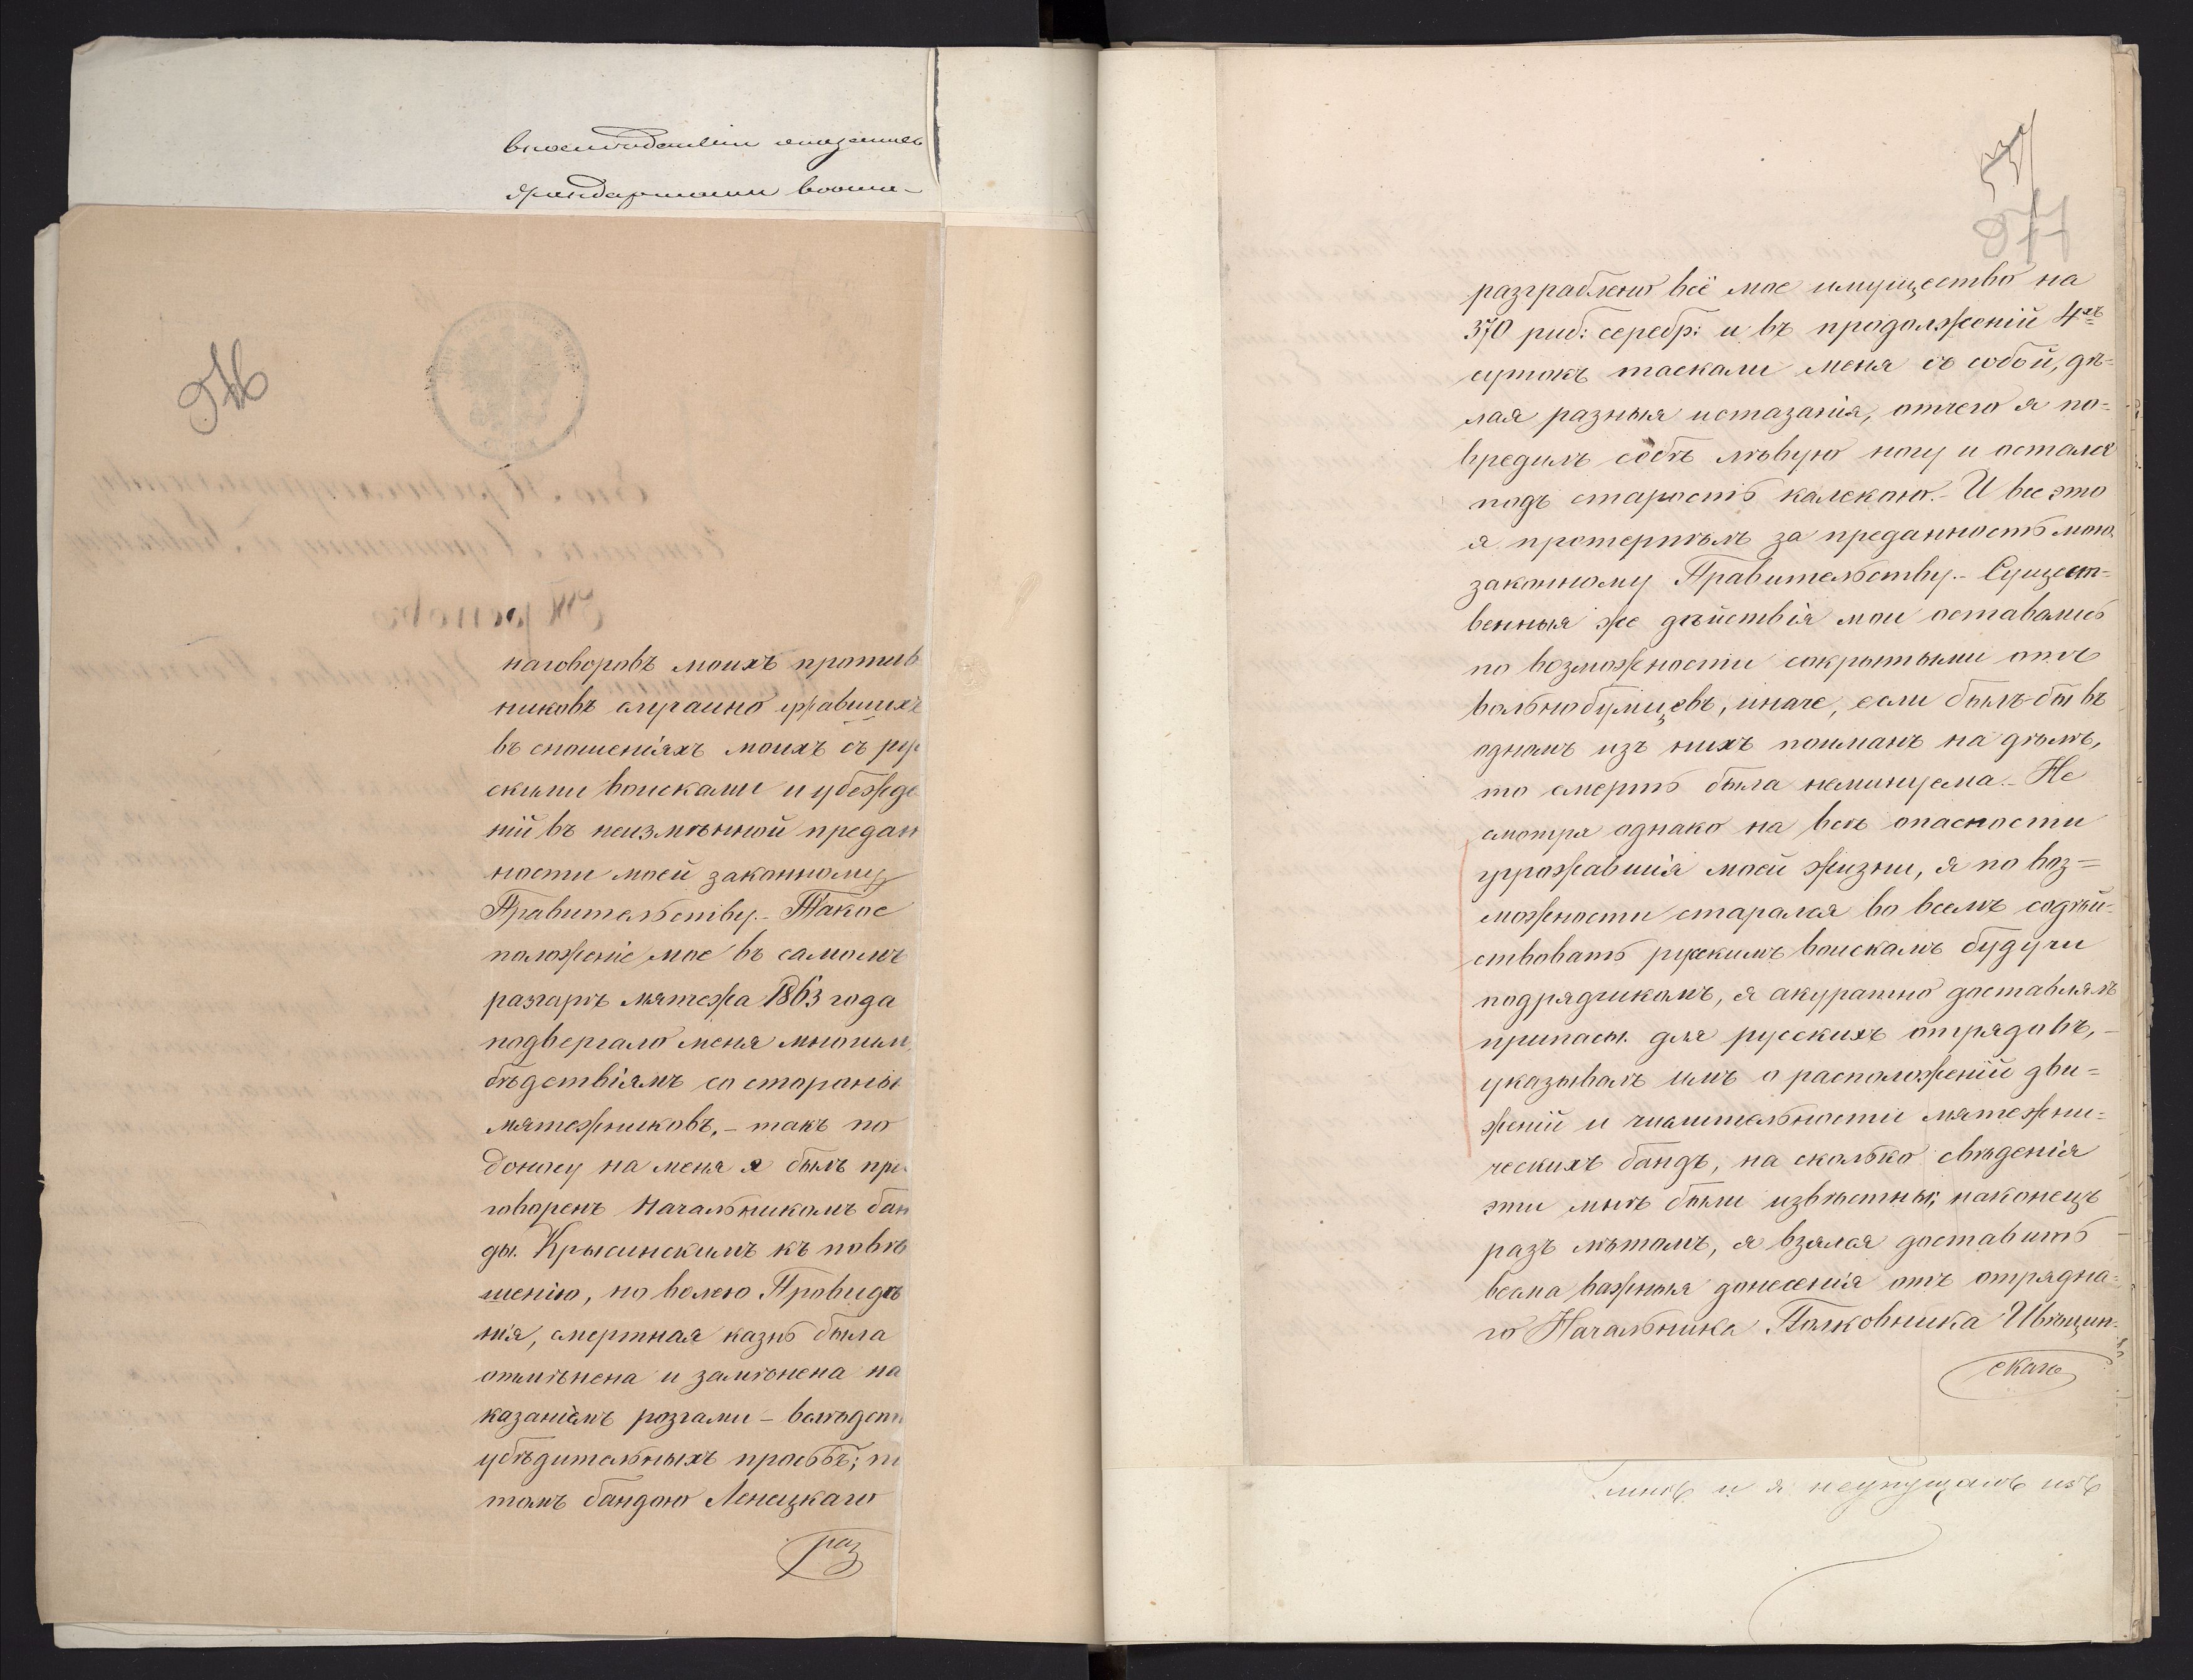 впослѣдствіи
жандармами
наговоровъ моихъ против
никовъ
въ сношеніяхъ моихъ съ рус
скими войсками и убежде
ній въ неизмѣнной предан
ности моей законному
Правительству.- Такое
положеніе мое въ самомъ
разгарѣ мятежа 1863 года
подвергало меня многим
бѣдствіямъ со стороны
мятежниковъ, - такъ по
доносу на меня я былъ при
говоренъ Начальникомъ бан
ды Крысинскимъ къ повѣ
шенію, но волею Провидѣ
нія, смертная казнь была
отмѣнена и замѣнена на
казаніемъ розгами - вслѣдств
убѣдительныхъ просьбъ; п
томъ бандою Ленецкаго
раз
377
разграблено всё мое имущество на
370 руб: серебр: и въ продолженіи 4хъ
сутокъ таскали меня съ собой, дѣ=
лая разныя истазанія, отчего я по=
вредилъ собѣ лѣвую ногу и остался
подъ старость калекою.- И все это
я протерпѣлъ за преданность мою
законному Правительству.- Сущест=
венныя же дѣйствія мои оставались
по возможности сокрытыми отъ
вольнодумцевъ, иначе, если былъ-бы въ
одномъ изъ нихъ пойманъ на дѣлѣ,
то смерть была неминуема.- Не
смотря однако на всѣ опасности
угрожавшія моей жизни, я по воз=
можности старался во всемъ содѣй=
ствовать русскимъ войскамъ будучи
подрядчикомъ, я акуратно доставлялъ
припасы для русскихъ отрядовъ, -
указывалъ имъ о расположеніи дви=
женій и числительности мятежни=
ческихъ бандъ, на сколько свѣденія
эти мнѣ были извѣстны; наконецъ
разъ лѣтомъ, я взялся доставить
весма важныя донесенія отъ отрядна=
го Начальника Полковника Ивѣщин=
скаго
и я неупущалъ изъ